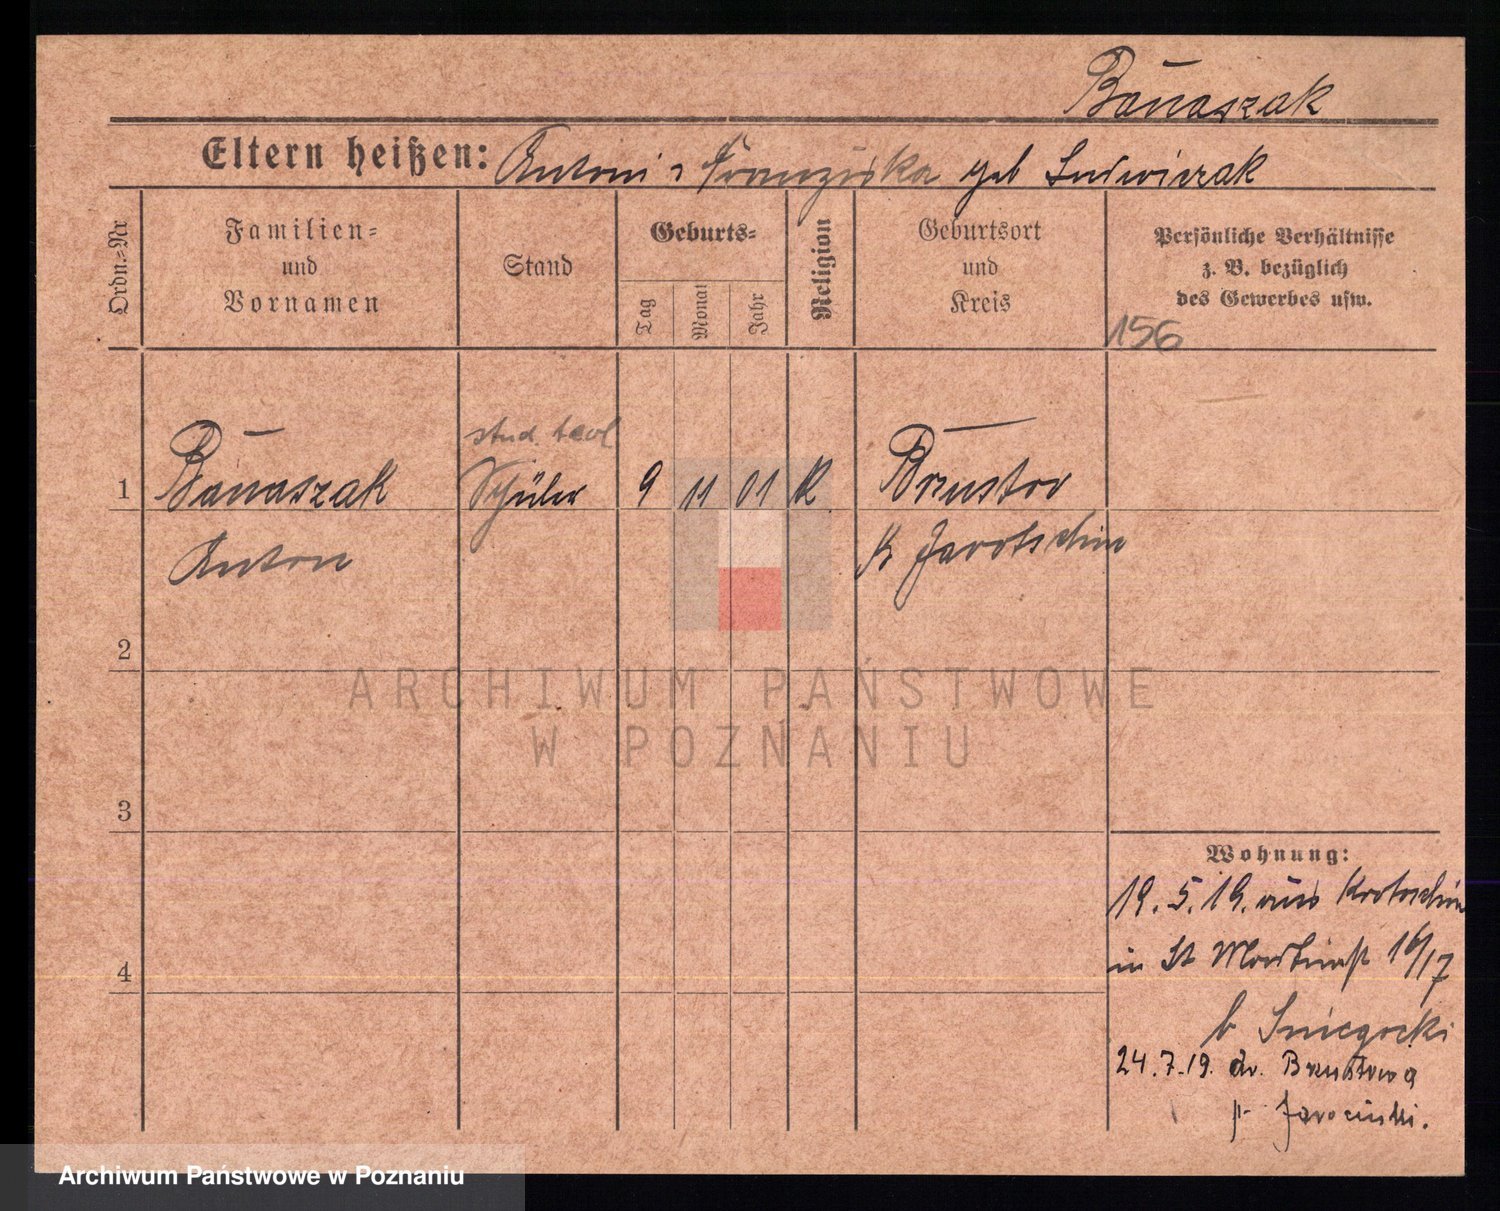 Banaszak
Eltern heißen: Antoni u Franziska geb Ludwiczak
Ordn.-Nr
Familien-
und
Vornamen
Stand
Geburts-
Tag
Monat
Jahr
Religion
Geburtsort
und
Kreis
Persönliche Verhältnisse
z. B. bezüglich
des Gewerbes usw.
156
stud.
1 Banaszak Schüler 9 11 01 K Brzustow
Anton Kr Jarotschin
2
3
4
Wohnung:
19.5.19. aus Krotoschin
in St Martinst 16/17
b Sniegocki
24.7.19. do. Brzustowa
p. Jarocinski.
ARCHIWUM PAŃSTWOWE
W POZNANIU
Archiwum Państwowe w Poznaniu